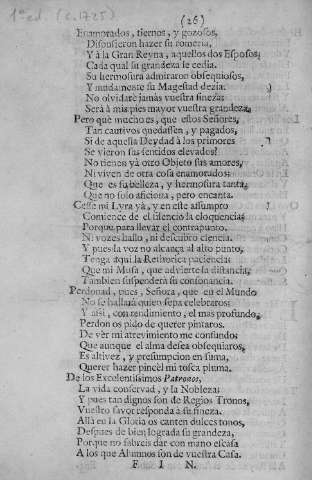 1ª ed. (c. 1725)
(26)
Enamorados, tiernos, y gozosos,
Dispusieron hazer su romeria,
Y à la Gran Reyna, aquellos dos Esposos,
Cada qual su grandeza le cedia.
Su hermosura admiraron obsequiosos,
Y mudamente su Magestad dezia:
No olvidarè jamàs vuestra fineza:
Serà à mis pies mayor vuestra grandeza.
Pero què mucho es, que estos Señores,
Tan cautivos quedassen, y pagados,
Si de aquella Deydad à los primores
Se vieron sus sentidos elevados?
No tienen yà otro Objeto sus amores,
Ni viven de otra cosa enamorados:
Que es su belleza, y hermosura tanta,
Que no solo aficiona, pero encanta.
Cesse mi Lyra yà, y en este assumpto
Comience de el silencio la eloquencia;
Porque para llevar el contrapunto,
Ni vozes hallo, ni descubro ciencia.
Y pues la voz no alcança al alto punto,
Tenga aqui la Rethorica paciencia;
Que mi Musa, que advierte la distancia,
Tambien suspenderà su consonancia.
Perdonad, pues, Señora, que en el Mundo
No se hallarà quien sepa celebraros:
Y assi, con rendimiento, el mas profundo,
Perdon os pido de querer pintaros.
De vèr mi atrevimiento me confundo;
Que aunque el alma desea obsequiaros,
Es altivez, y presumpcion en suma,
Querer hazer pincèl mi tosca pluma.
De los Excelentissimos Patronos,
La vida conservad, y la Nobleza:
Y pues tan dignos son de Regios Tronos,
Vuestro favor responda à su fineza.
Allà en la Gloria os canten dulces tonos,
Despues de bien lograda su grandeza,
Porque no sabreis dar con mano escasa
A los que Alumnos son de vuestra Casa.
F I N.